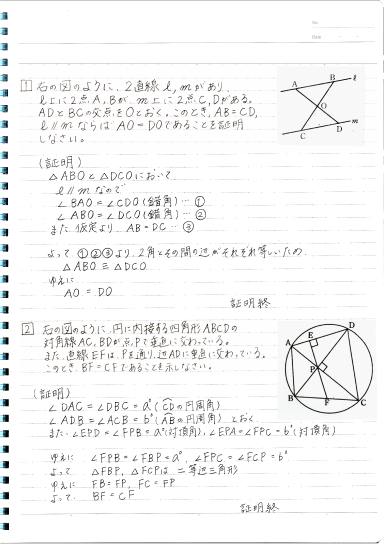 No.
Date
1 右の図のように、2直線 l, m があり、
l上に2点A, Bが、m上に2点C, Dがある。
ADとBCの交点をOとおく。このとき、AB=CD,
l // m ならば AO=DO であることを証明
しなさい。
A B l
O
C D m
(証明)
△ABO と △DCO において
l // m なので
∠BAO = ∠CDO (錯角) … ①
∠ABO = ∠DCO (錯角) … ②
また 仮定より AB = DC … ③
よって ①②③より、2角とその間の辺がそれぞれ等しいため
△ABO ≡ △DCO
ゆえに
AO = DO
証明終
2 右の図のように、円に内接する四角形ABCDの
対角線AC, BDが点Pで垂直に交わっている。
また、直線EFは、Pを通り、辺ADに垂直に交わっている。
このとき、BF=CFであることを示しなさい。
A E D
P
B F C
(証明)
∠DAC = ∠DBC = a° (CDの円周角)
∠ADB = ∠ACB = b° (ABの円周角) とおく
また ∠EPD = ∠FPB = a° (対頂角), ∠EPA = ∠FPC = b° (対頂角)
ゆえに ∠FPB = ∠FBP = a°, ∠FPC = ∠FCP = b°
よって △FBP, △FCPは 二等辺三角形
ゆえに FB = FP, FC = FP
よって BF = CF
証明終